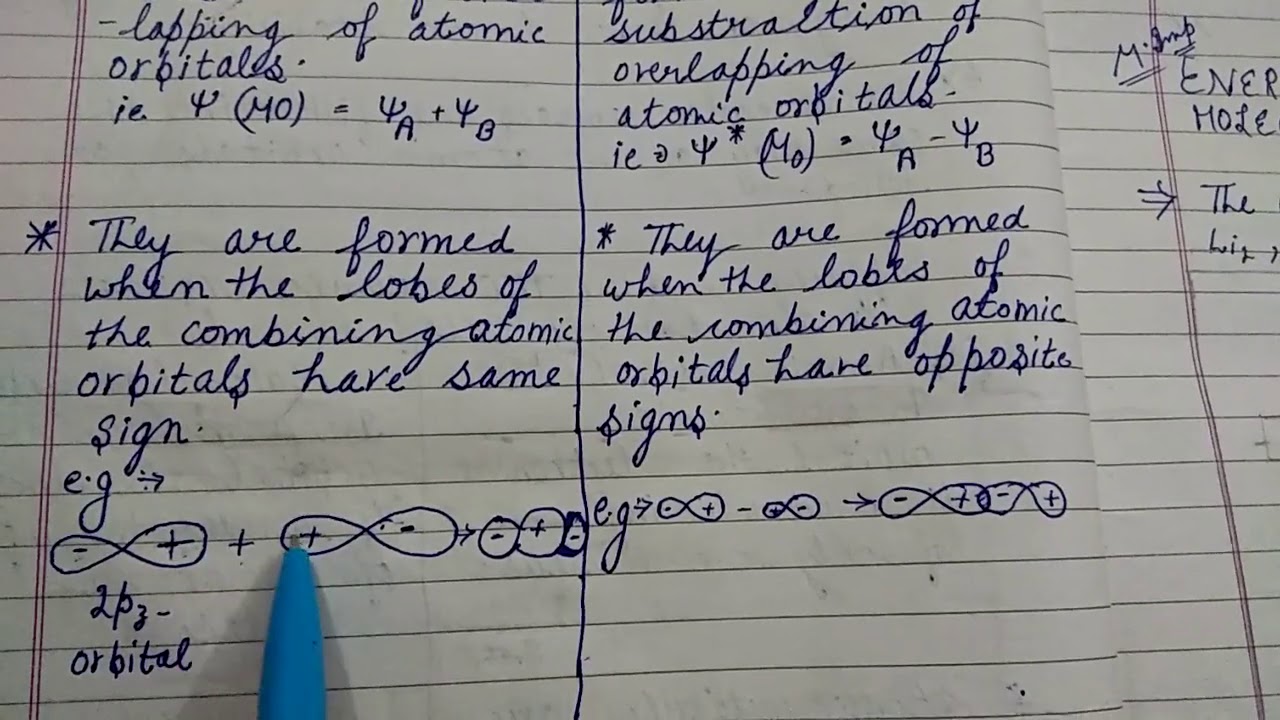 -lapping of atomic
orbitales.
ie. Ψ (MO) = Ψ_A + Ψ_B
* They are formed
when the lobes of
the combining atomic
orbitals have same
sign.
e.g →
- + + + - → - + -
2p_z -
orbital
substraltion of
overlapping of
atomic orbitals.
ie Ψ* (MO) = Ψ_A - Ψ_B
* They are formed
when the lobes of
the combining atomic
orbitals have opposite
signs.
e.g → - + - + - → - + - +
M.Imp
ENER
MOLE
⇒ The
Li₂,